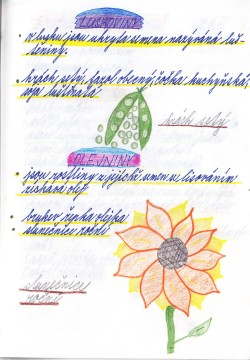 LUSKOVINY
• v lusku jsou ukryta semena nazývána luš-
těniny.
• hrách setý, fazol obecný, čočka kuchyňská,
soja luštinatá
hrách setý
OLEJNINY
• jsou rostliny z jejichž semen se lisováním
získává olej
• brukev řepka olejka
• slunečnice roční
slunečnice
roční